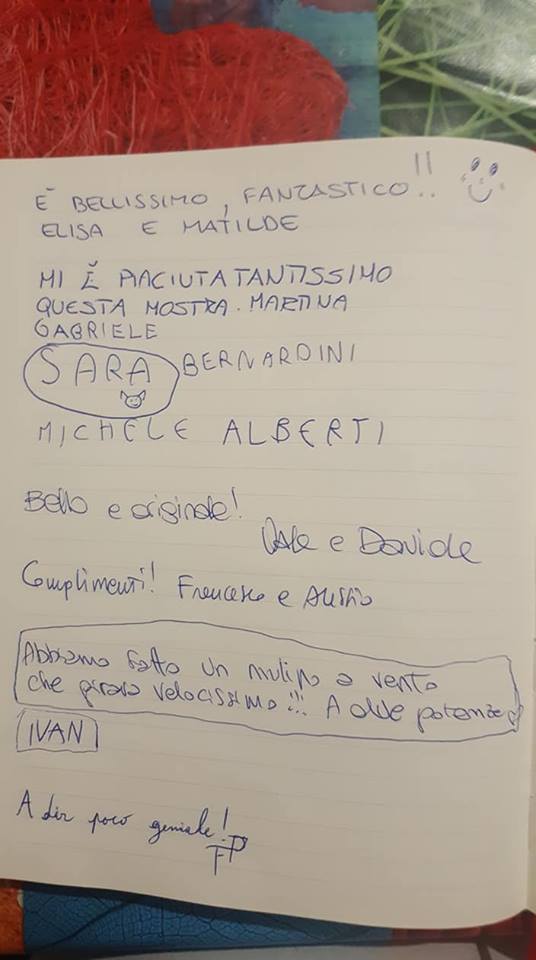 È BELLISSIMO, FANTASTICO!!
ELISA E MATILDE
MI È PIACIUTA TANTISSIMO
QUESTA MOSTRA. MARTINA
GABRIELE
SARA BERNARDINI
MICHELE ALBERTI
Bello e originale!
e Davide
Complimenti! Francesco e
Abbiamo fatto un mulino a vento
che girava velocissimo!!! A due potenze
IVAN
A dir poco geniale!
FP